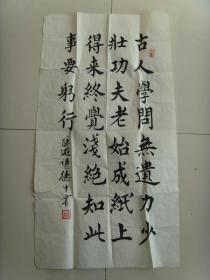 古人學問無遺力少
壯功夫老始成紙上
得来終覺淺絕知此
事要躬行
陸游詩德中書